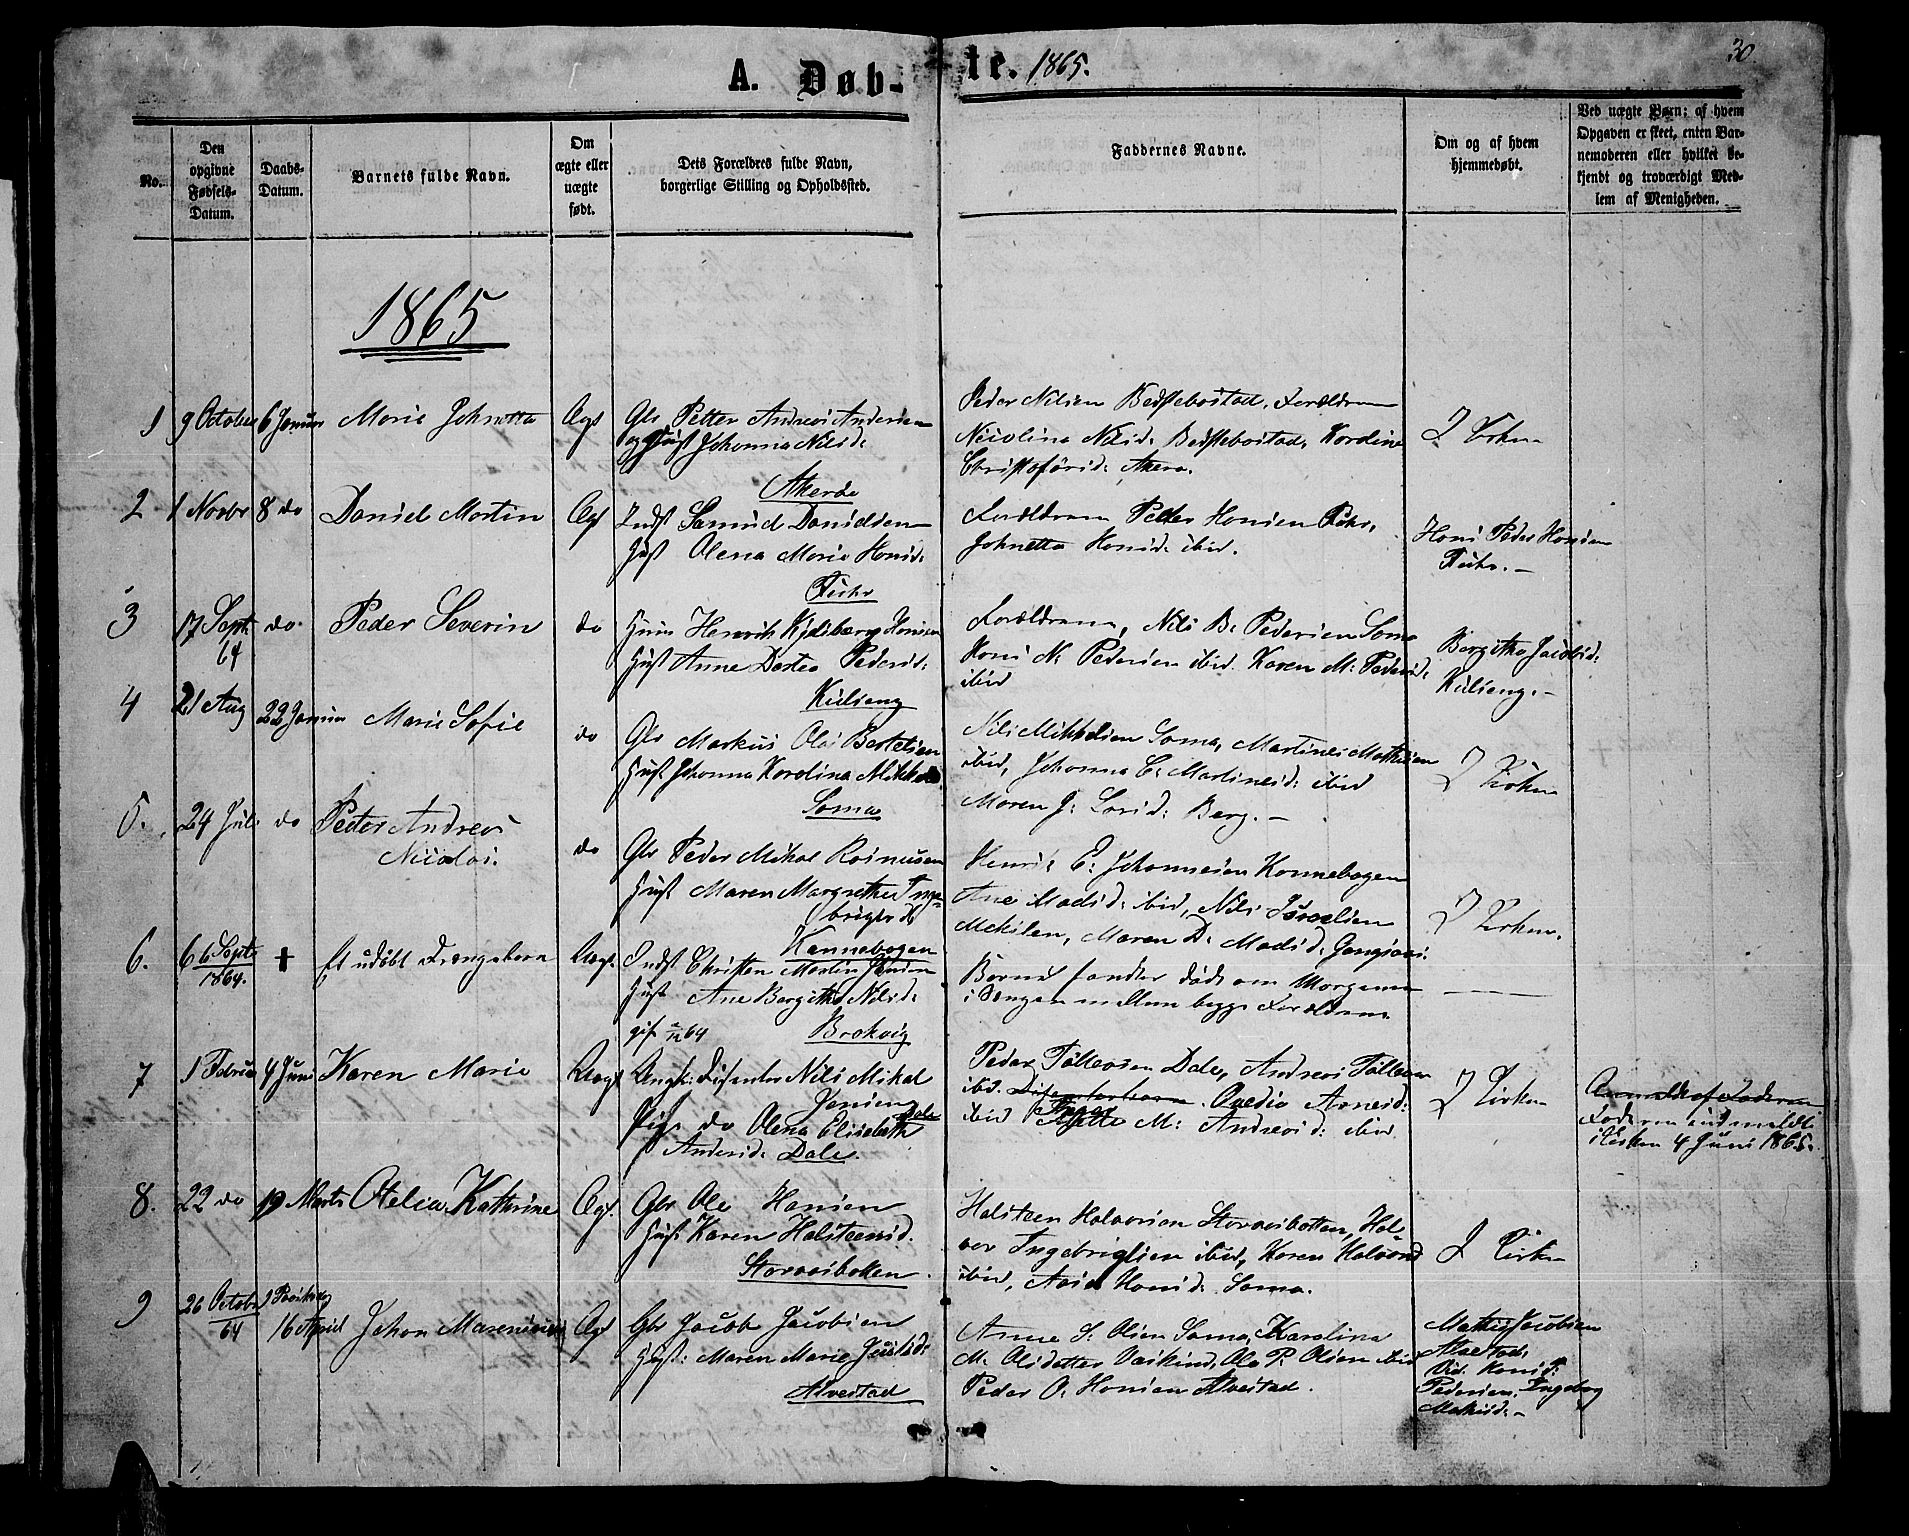 A. Døb-
te. 1865.
30.
No.
Den opgivne Fødsels-Datum.
Daabs-Datum.
Barnets fulde Navn.
Om ægte eller uægte født.
Dets Forældres fulde Navn, borgerlige Stilling og Opholdssted.
Faddernes Navne.
Om og af hvem hjemmedøbt.
Ved uægte Børn; af hvem Opgaven er skeet, enten Barnemoderen eller hvilket bekjendt og troværdigt Medlem af Menigheden.
1865
1 9 October 6 Januar Marie Johnetta Ægt
Gbr Petter Andreas Andersen
og Hust Johanna Nilsd:
Akerøe
Peder Nilsen Bedstebostad, Forældrene
Nicolina Nilsd: Bedstebostad, Karoline
Christofersd: Akerø.
I Kirken
2 1 Novbr 8 do Daniel Martin Ægt
Indst Samuel Danielsen
Hust Olena Marie Hansd:
Fuhr
Forældrene Peder Hansen Fuhr,
Johnetta Hansd: ibid.
Hans Peder Hansen
Fuhr.
3 17 Sept 64 do Peder Severin do
Huus Henrik Kyldberg Hansen
Hust Anne Dortea Pedersd:
Kulseng
Forældrene, Nils B: Pedersen Soma
Hans N: Pedersen ibid. Karen M: Pedersd:
ibid
Bergithe Jacobsd:
Kulseng.
4 21 Aug 22 Januar Marie Sofie do
Gbr Markus Olai Bertelsen
Hust Johanna Karolina Mikkelsd
Soma
Nils Mikkelsen Soma, Martines Mathisen
ibid, Johanna C: Martinesd: ibid
Maren J: Larsd: Berg.
I Kirken
5. 24 Juli do Peter Andreas
Nicolai. do
Gbr Peder Mikal Rasmusen
Hust Maren Margrethe Inge-
brigtsd:
Kannebogen
Henrik E: Johannesen Kannebogen
Ane Madsd: ibid, Nils Israelsen
Mekilen, Maren D: Madsd:
I Kirken.
6. 6 Septr 1864. + Et udøbt Drengebarn Uægt.
Indst Christen Martin Jensen
Hust Ane Bergithe Nilsd:
gift 64 Brokvig
Barnet fandtes død om Morgenen
i Sengen mellem begge Forældrene
7 1 Februar 4 Juni Karen Marie Uægt
Ungk: Dissenter Nils Mikal
Jensen Dale
Pige do Olena Elisabeth
Andersd: Dale.
Peder Tollevsen Dale, Andreas Tollevsen
ibid. Dissenterbarn. Arnesd:
ibid M: Andreasd: ibid
I Kirken
Anmeldt af Faderen
Faderen indmeldt
i Kirken 4 Juni 1865.
8. 22 do 19 Marts Otelia Kathrine Ægt.
Gbr Ole Hansen
Hust Karen Halsteensd.
Storvasbotten
Halsteen Halvorsen Storvasbotten, Hal-
vor Ingebrigtsen ibid, Karen Halvorsd
ibid, Hansd: Soma.
I Kirken
9 26 October 64 1 Paaskedag
16 April Johan Marenius Ægt
Gbr Jacob Jacobsen
Hust: Maren Marie Jensd:
Alvestad
Anne S: Olsen Soma, Karolina
M: Olsdatter Vaskind, Ole P: Olsen ibid
Peder O: Hansen Alvestad.
Mathis Jacobsen
Alvestad,
Vid: Hans
Pedersen, Ingeborg
Mathisd: